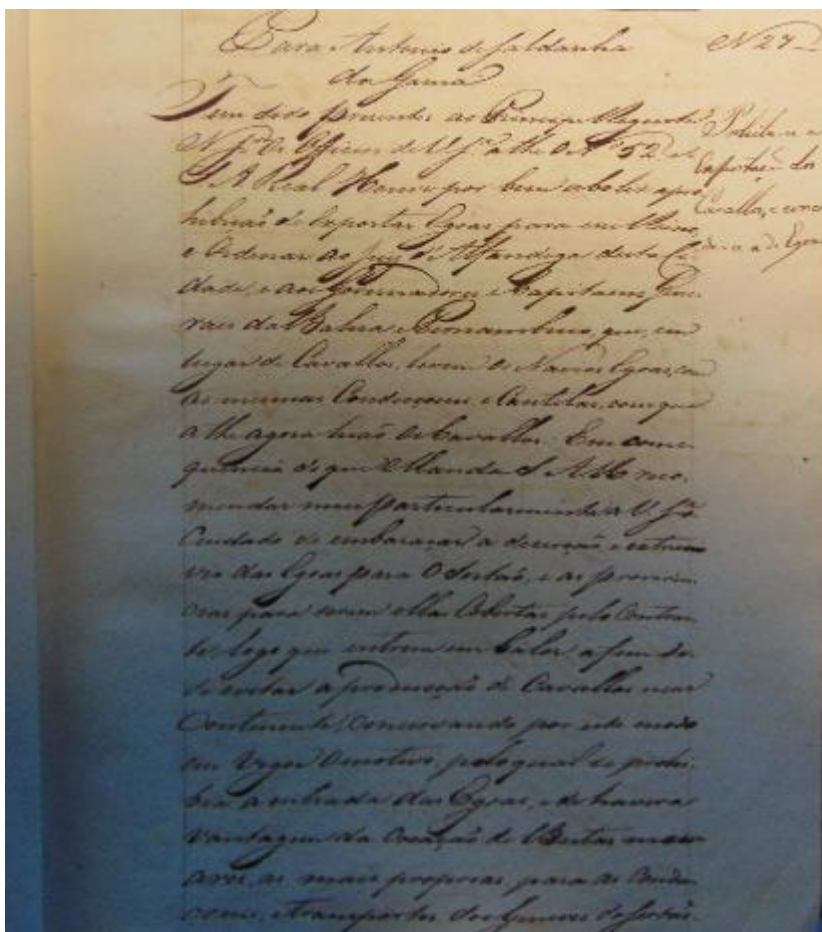 Para Antonio de Saldanha N 27
da Gama
Tem sido presentes ao Principe Regente
N. Sr. os Officios de V. Sa. athe o No. 52 e
S A Real Houve por bem abolir a pro
hibição de exportar Egoas para esse
e Ordenar ao Juiz d'Alfandega desta Ci
dade, e aos Governadores e Capitaens Gene
raes da Bahia e Pernambuco, que, em
lugar de Cavallos, levem os Navios Egoas, com
as mesmas Condiçoens, e Cautelas, com que
athe agora hião os Cavallos. Em conse
quencia do que Manda S A R reco
mendar mui particularmente a V. Sa. o
Cuidado de embaraçar a deserção, e extravio
das Egoas para o Sertão, e as providen
cias para serem ellas Cobertas pelo Contra
logo que entrem em Calor, a fim de
se evitar a producção de Cavallos nesse
Continente, Conservando por este modo
em vigor o motivo, pelo qual se prohi
bia a entrada das Egoas, e de haver a
vantagem da Creação de Bestas mua
ares, as mais proprias para as Condu
coens, e transportes dos generos do Sertão.
Prohibe-se a
Exportação dos
Cavallos, e conce
de-se a de Egoas